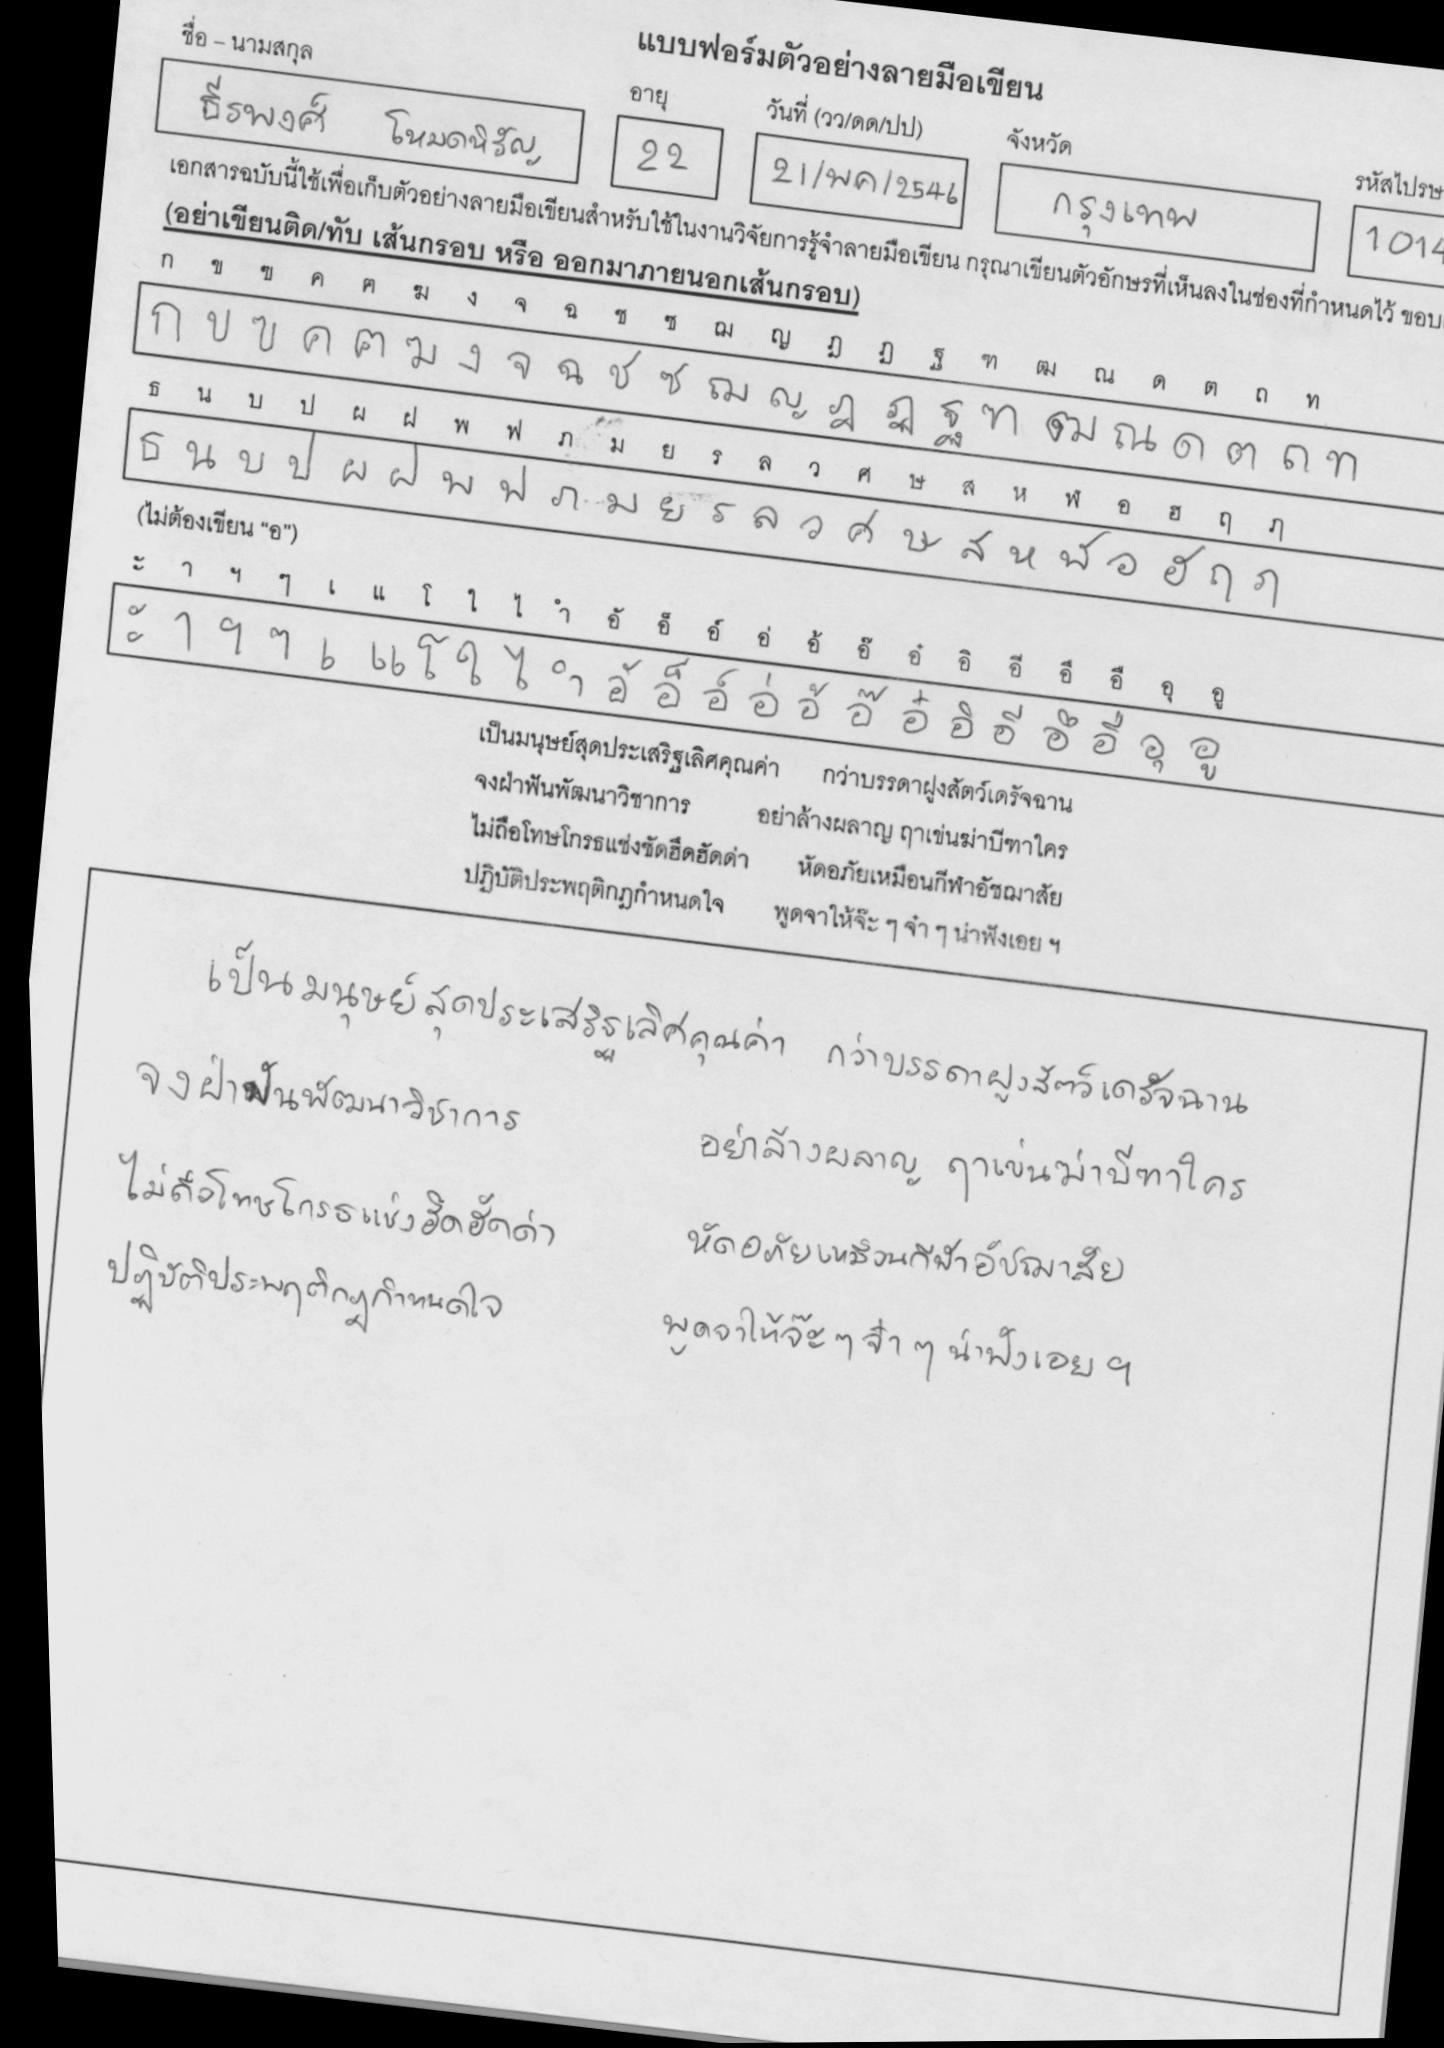 แบบฟอร์มตัวอย่างลายมือเขียน
ชื่อ – นามสกุล อายุ วันที่ (วว/ดด/ปป) จังหวัด
ธีรพงศ์ โหมดหิรัญ 22 21/พค/2546 กรุงเทพ
เอกสารฉบับนี้ใช้เพื่อเก็บตัวอย่างลายมือเขียนสำหรับใช้ในงานวิจัยการรู้จำลายมือเขียน กรุณาเขียนตัวอักษรที่เห็นลงในช่องที่กำหนดไว้
(อย่าเขียนติด/ทับ เส้นกรอบ หรือ ออกมาภายนอกเส้นกรอบ)
ก ข ฃ ค ฅ ฆ ง จ ฉ ช ซ ฌ ญ ฎ ฏ ฐ ฑ ฒ ณ ด ต ถ ท
ก ข ฃ ค ฅ ฆ ง จ ฉ ช ซ ฌ ญ ฎ ฏ ฐ ฑ ฒ ณ ด ต ถ ท
ธ น บ ป ผ ฝ พ ฟ ภ ม ย ร ล ว ศ ษ ส ห ฬ อ ฮ ฤ ฦ
ธ น บ ป ผ ฝ พ ฟ ภ ม ย ร ล ว ศ ษ ส ห ฬ อ ฮ ฤ ฦ
(ไม่ต้องเขียน "อ")
ะ า ฯ ๆ เ แ โ ใ ไ ำ อั อ็ อ์ อ่ อ้ อ๊ อ๋ อิ อี อึ อื อุ อู
ะ า ฯ ๆ เ แ โ ใ ไ ำ อั อ็ อ์ อ่ อ้ อ๊ อ๋ อิ อี อึ อื อุ อู
เป็นมนุษย์สุดประเสริฐเลิศคุณค่า กว่าบรรดาฝูงสัตว์เดรัจฉาน
จงฝ่าฟันพัฒนาวิชาการ อย่าล้างผลาญ ฤาเข่นฆ่าบีฑาใคร
ไม่ถือโทษโกรธแช่งซัดฮึดฮัดด่า หัดอภัยเหมือนกีฬาอัชฌาสัย
ปฏิบัติประพฤติกฎกำหนดใจ พูดจาให้จ๊ะ ๆ จ๋า ๆ น่าฟังเอย ฯ
เป็นมนุษย์สุดประเสริฐเลิศคุณค่า กว่าบรรดาฝูงสัตว์เดรัจฉาน
จงฝ่าฟันพัฒนาวิชาการ อย่าล้างผลาญ ฤาเข่นฆ่าบีฑาใคร
ไม่ถือโทษโกรธแช่งฮึดฮัดด่า หัดอภัยเหมือนกีฬาอัชฌาสัย
ปฏิบัติประพฤติกฎกำหนดใจ พูดจาให้จ๊ะ ๆ จ๋า ๆ น่าฟังเอย ฯ